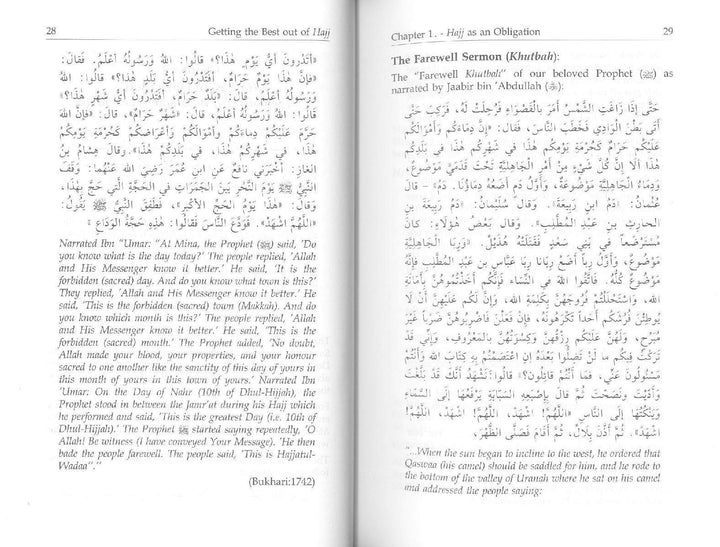 28 Getting the Best out of Hajj
«أتدرون أي يوم هذا؟» قالوا: الله ورسوله أعلم. فقال:
«فإن هذا يوم حرام، أفتدرون أي بلد هذا؟» قالوا: الله
ورسوله أعلم، قال: «بلد حرام، أفتدرون أي شهر هذا؟»
قالوا: الله ورسوله أعلم، قال: «شهر حرام»، قال: «فإن الله
حرم عليكم دماءكم وأموالكم وأعراضكم كحرمة يومكم
هذا، في شهركم هذا، في بلدكم هذا». وقال هشام بن
الغاز: أخبرني نافع عن ابن عمر رضي الله عنهما: وقف
النبي ﷺ يوم النحر بين الجمرات في الحجة التي حج بهذا،
وقال: «هذا يوم الحج الأكبر»، فطفق النبي ﷺ يقول:
«اللهم اشهد». فودع الناس فقالوا: هذه حجة الوداع»
Narrated Ibn "Umar: "At Mina, the Prophet (ﷺ) said, 'Do
you know what is the day today?' The people replied, 'Allah
and His Messenger know it better.' He said, 'It is the
forbidden (sacred) day. And do you know what town is this?'
They replied, 'Allah and His Messenger know it better.' He
said, 'This is the forbidden (sacred) town (Makkah). And do
you know which month is this?' The people replied, 'Allah
and His Messenger know it better.' He said, 'This is the
forbidden (sacred) month.' The Prophet added, 'No doubt,
Allah made your blood, your properties, and your honour
sacred to one another like the sanctity of this day of yours in
this month of yours in this town of yours.' Narrated Ibn
'Umar: On the Day of Nahr (10th of Dhul-Hijjah), the
Prophet stood in between the Jamrat during his Hajj which
he performed and said, 'This is the greatest Day (i.e. 10th of
Dhul-Hijjah).' The Prophet ﷺ started saying repeatedly, 'O
Allah! Be witness (I have conveyed Your Message). 'He then
bade the people farewell. The people said, 'This is Hajjatul-
Wadaa"."
(Bukhari:1742)
Chapter 1. - Hajj as an Obligation 29
The Farewell Sermon (Khutbah):
The "Farewell Khutbah" of our beloved Prophet (ﷺ) as
narrated by Jaabir bin 'Abdullah
حتى إذا زاغت الشمس أمر بالقصواء فرحلت له، فركب حتى
أتى بطن الوادي فخطب الناس، فقال: «إن دماءكم وأموالكم
عليكم حرام كحرمة يومكم هذا في شهركم هذا في بلدكم
هذا ألا إن كل شيء من أمر الجاهلية تحت قدمي موضوع،
ودماء الجاهلية موضوعة، وأول دم أضعه دماؤنا. دم» - قال
عثمان: «دم ابن ربيعة». وقال سليمان: «دم ربيعة بن
الحارث بن عبد المطلب». وقال بعض هؤلاء: كان
مسترضعا في بني سعد فقتلته هذيل. «وربا الجاهلية
موضوع، وأول ربا أضع ربانا ربا عباس بن عبد المطلب فإنه
موضوع كله. فاتقوا الله في النساء فإنكم أخذتموهن بأمانة
الله، واستحللتم فروجهن بكلمة الله، وإن لكم عليهن أن لا
يوطئن فرشكم أحدا تكرهونه، فإن فعلن فاضربوهن ضربا غير
مبرح، ولهن عليكم رزقهن وكسوتهن بالمعروف، وإني قد
تركت فيكم ما لن تضلوا بعده إن اعتصمتم به كتاب الله وأنتم
مسئولون عني، فما أنتم قائلون؟» قالوا: نشهد أنك قد بلغت
وأديت ونصحت ثم قال بإصبعه السبابة يرفعها إلى السماء
وينكتها إلى الناس «اللهم! اشهد، اللهم! اشهد، اللهم!
اشهد». ثم أذن بلال، ثم أقام فصلى الظهر،
"...When the sun began to incline to the west, he ordered that
Qaswaa (his camel) should be saddled for him, and he rode to
the bottom of the valley of Uranah where he sat on his camel
and addressed the people saying: